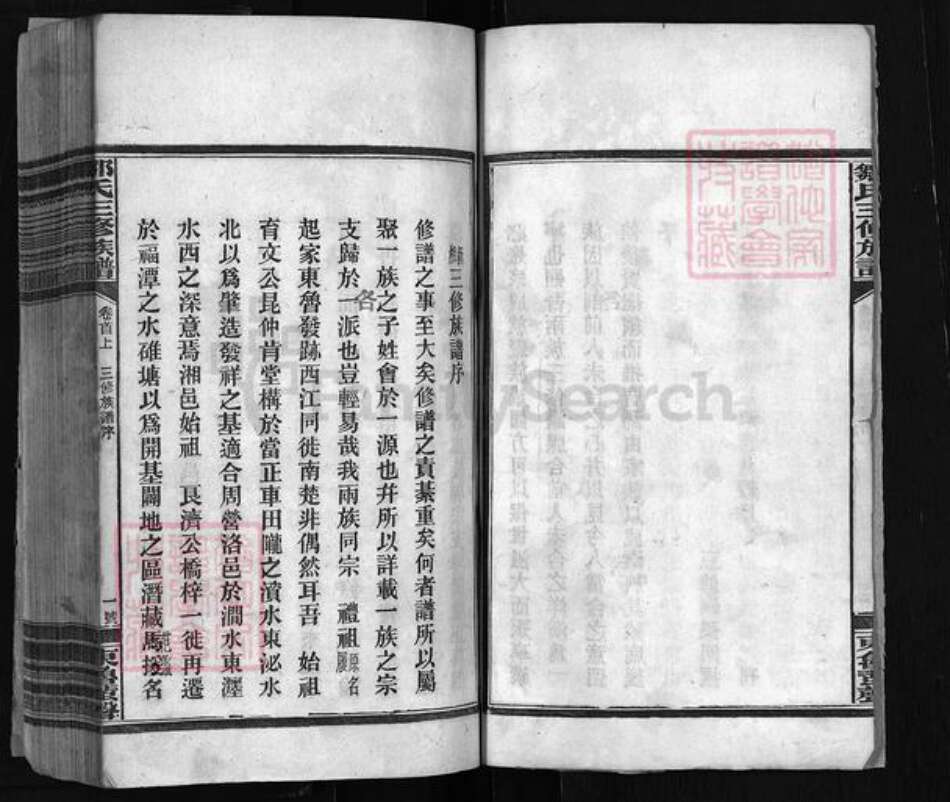 鄒氏三修族譜
修三修族譜序
修譜之事至大矣修譜之責綦重矣何者譜所以屬
聚一族之子姓會於一源也幷所以詳載一族之宗
支歸於一派也豈輕易哉我兩族同宗 禮祖原名
各
起家東魯發跡西江同徙南楚非偶然耳吾 始祖
育文公昆仲肯堂構於當正車田隴之濆水東泌水
北以爲肇造發祥之基適合周營洛邑於澗水東瀍
水西之深意焉湘邑始祖 艮濟公橋梓一徙再遷
於福潭之水碓塘以爲開基闢地之區潛藏馬
名
鄒氏三修族譜
卷首上
三修族譜序
一號
FamilySearch